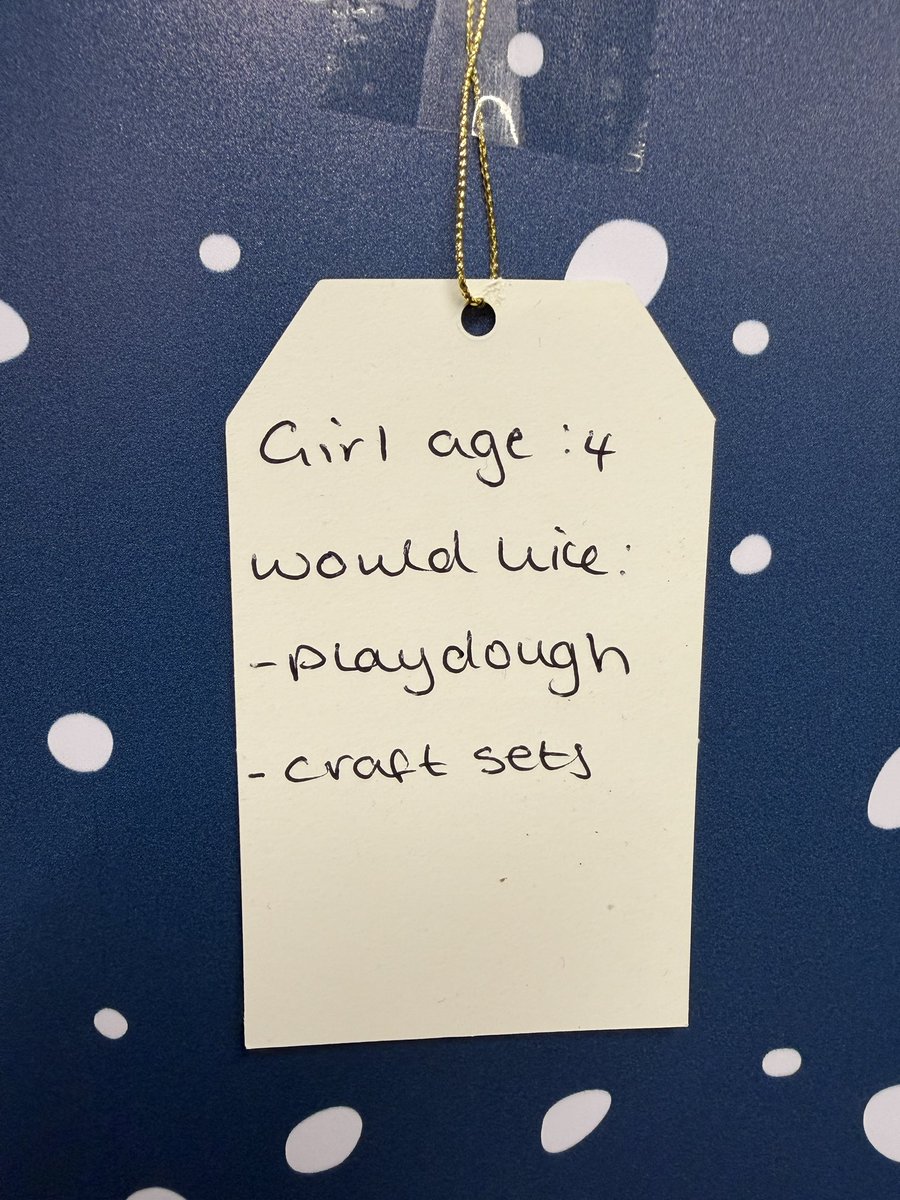 Girl age :4
would like:
- playdough
- craft sets